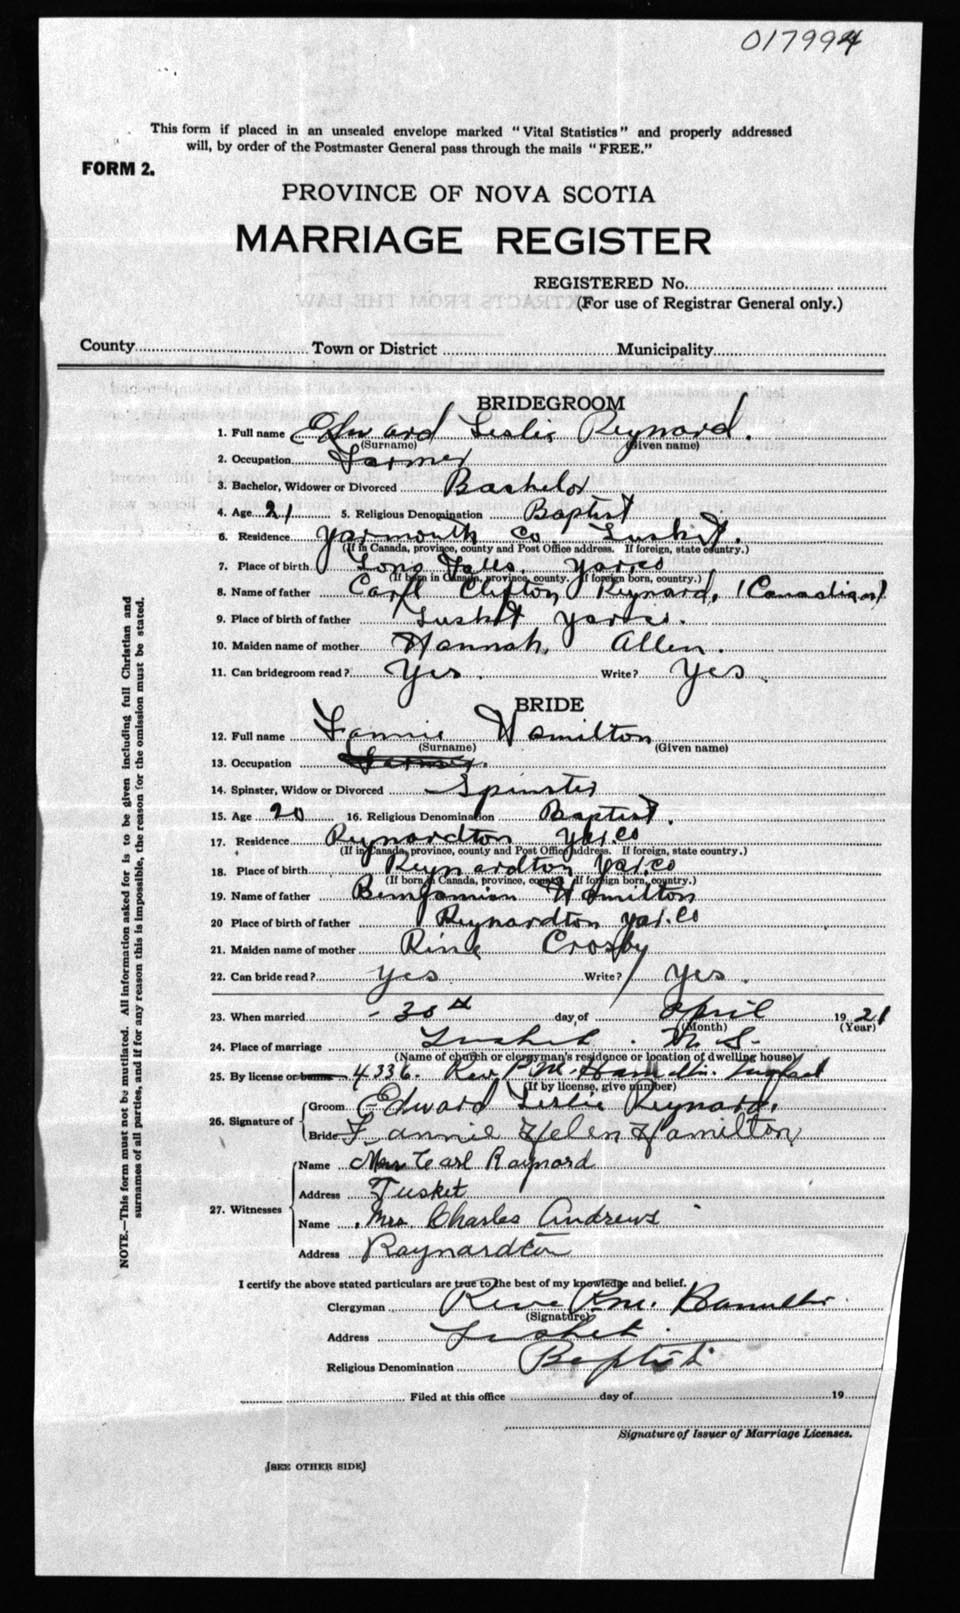 017994
This form if placed in an unsealed envelope marked "Vital Statistics" and properly addressed
will, by order of the Postmaster General pass through the mails "FREE."
FORM 2.
PROVINCE OF NOVA SCOTIA
MARRIAGE REGISTER
REGISTERED No.
(For use of Registrar General only.)
County Town or District Municipality
BRIDEGROOM
1. Full name Edward Leslie Reynard.
(Surname) (Given name)
2. Occupation Farmer
3. Bachelor, Widower or Divorced Bachelor
4. Age 21 5. Religious Denomination Baptist
6. Residence Yarmouth Co Tusket.
(If in Canada, province, county and Post Office address. If foreign, state country.)
7. Place of birth Long Falls. Yarco
(If born in Canada, province, county. If foreign born, country.)
8. Name of father Carl Clifton Reynard, (Canadian)
9. Place of birth of father Tusket Yarco.
10. Maiden name of mother Hannah, Allen.
11. Can bridegroom read? Yes. Write? Yes.
BRIDE
12. Full name Fannie Hamilton
(Surname) (Given name)
13. Occupation Farmer.
14. Spinster, Widow or Divorced Spinster
15. Age 20 16. Religious Denomination Baptist.
17. Residence Reynardton Yar.co
(If in Canada, province, county and Post Office address. If foreign, state country.)
18. Place of birth Reynardton Yar.co
(If born in Canada, province, county. If foreign born, country.)
19. Name of father Bemjamian Hamilton
20 Place of birth of father Reynardton Yar.Co
21. Maiden name of mother Crosby
22. Can bride read? Yes Write? Yes.
23. When married 30th day of April 1921
(Month) (Year)
24. Place of marriage Tusket. N.S.
(Name of church or clergyman's residence or location of dwelling house)
25. By license or banns 4336. Rev. P.M. Hamilton. Tusket
(If by license, give number)
26. Signature of
Groom Edward Leslie Reynard.
Bride Fannie Helen Hamilton
27. Witnesses
Name Mrs Carl Raynard
Address Tusket
Name Mrs Charles Andrews
Address Raynardton
I certify the above stated particulars are true to the best of my knowledge and belief.
Clergyman P.M. Hamilton.
(Signature)
Address Tusket.
Religious Denomination Baptist
Filed at this office day of 19
Signature of Issuer of Marriage Licenses.
[SEE OTHER SIDE]
NOTE.—This form must not be mutilated. All information asked for is to be given including full Christian and
surnames of all parties, and if for any reason this is impossible, the reason for the omission must be stated.